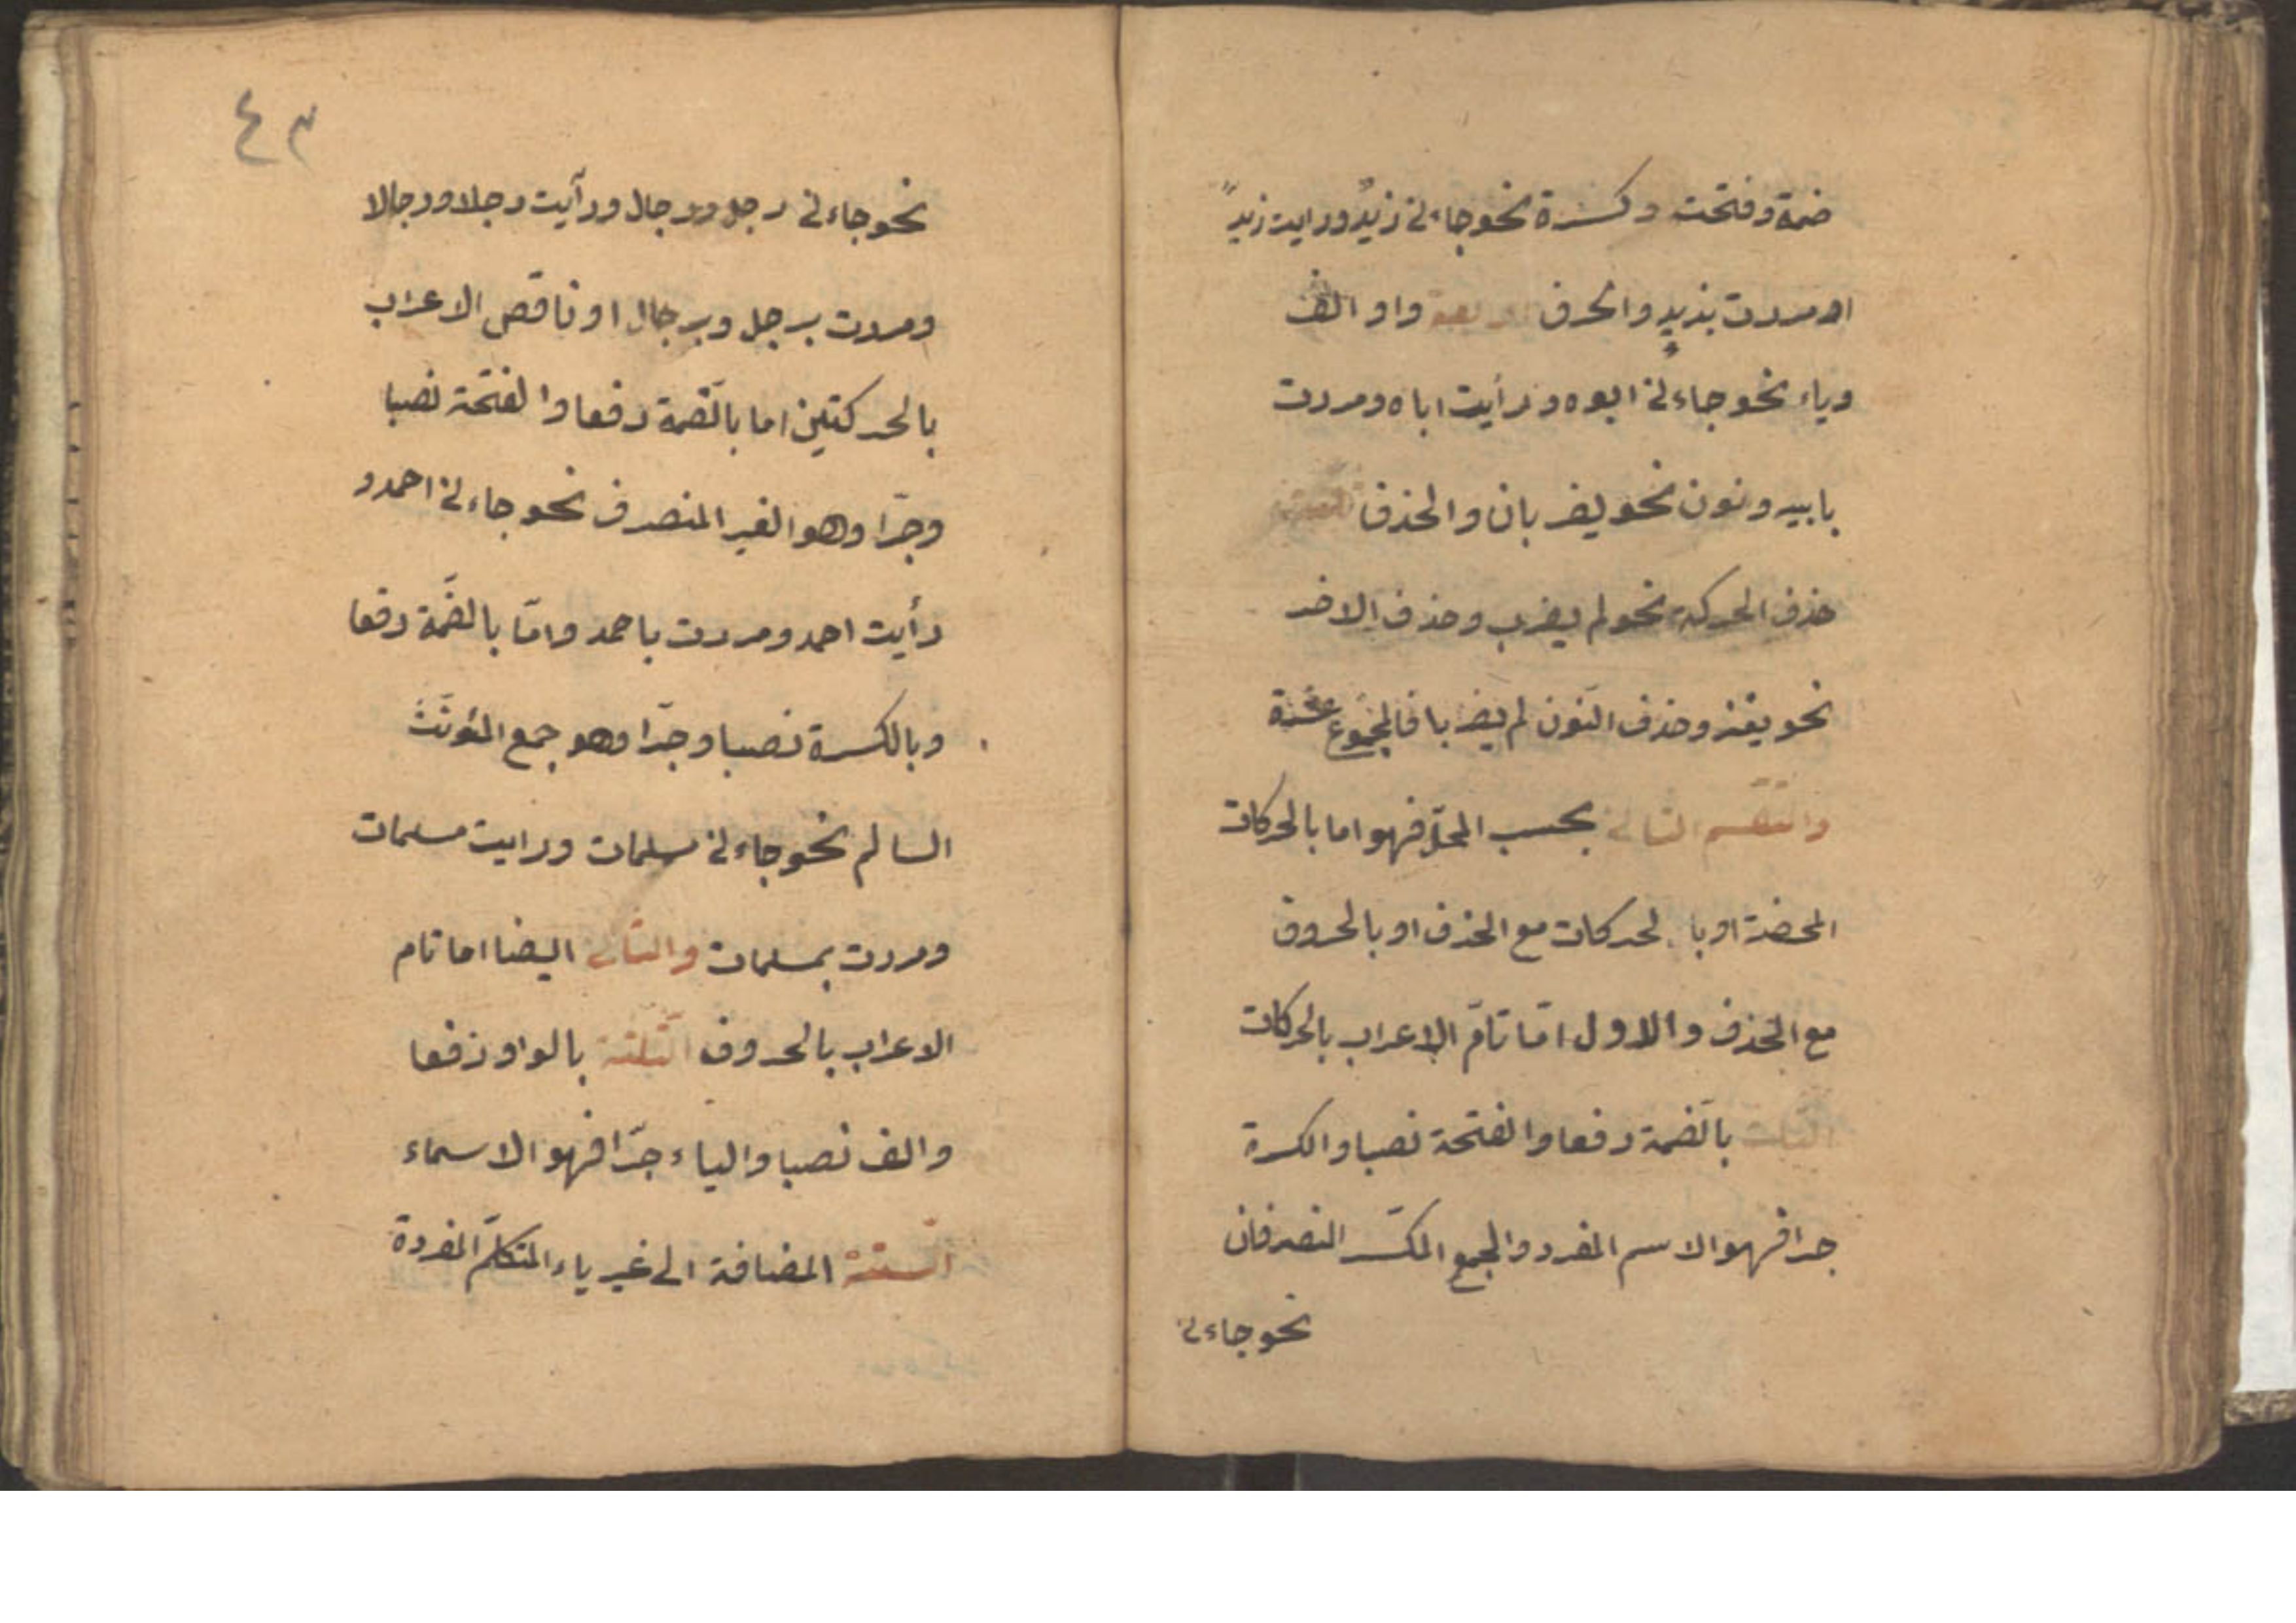 ضمة وفتحت وكسرة نحو جاءني زيدٌ ورايت زيدً
او مررت بزيدٍ والحرف اربعة واو الف
وياء نحو جاءني ابوه ورأيت اباه ومررت
بابيه ونون نحو يضربان والحذف
حذف الحركة نحو لم يضرب وحذف الاخر
نحو يغز وحذف النّون لم يضربا فالمجموع عشرة
والتقسم الثانى بحسب المحلّ فهو اما بالحركات
المحضة او بالحركات مع الحذف او بالحروف
مع الحذف والاول امّا تامّ الاعراب بالحركات
الثلث بالضّمة رفعا والفتحة نصبا والكسرة
جرا فهو الاسم المفرد والجمع المكسّر المنصرفان
نحو جاءنى
٤٣
نحو جاءنى رجل ورجال ورأيت رجلا ورجالا
ومررت برجل وبرجال او ناقص الاعراب
بالحركتين اما بالضّمة رفعا والفتحة نصبا
وجرّا وهو الغير المنصرف نحو جاءنى احمد و
رأيت احمد ومررت باحمد وامّا بالضّمة رفعا
وبالكسرة نصبا وجرّا وهو جمع المؤنّث
السالم نحو جاءنى مسلمات ورايت مسلمات
ومررت بمسلمات والثانى ايضا اما تام
الاعراب بالحروف الثّلثة بالواو رفعا
والف نصبا والياء جرّا فهو الاسماء
السّتة المضافة الى غير ياء المتكلّم المفردة